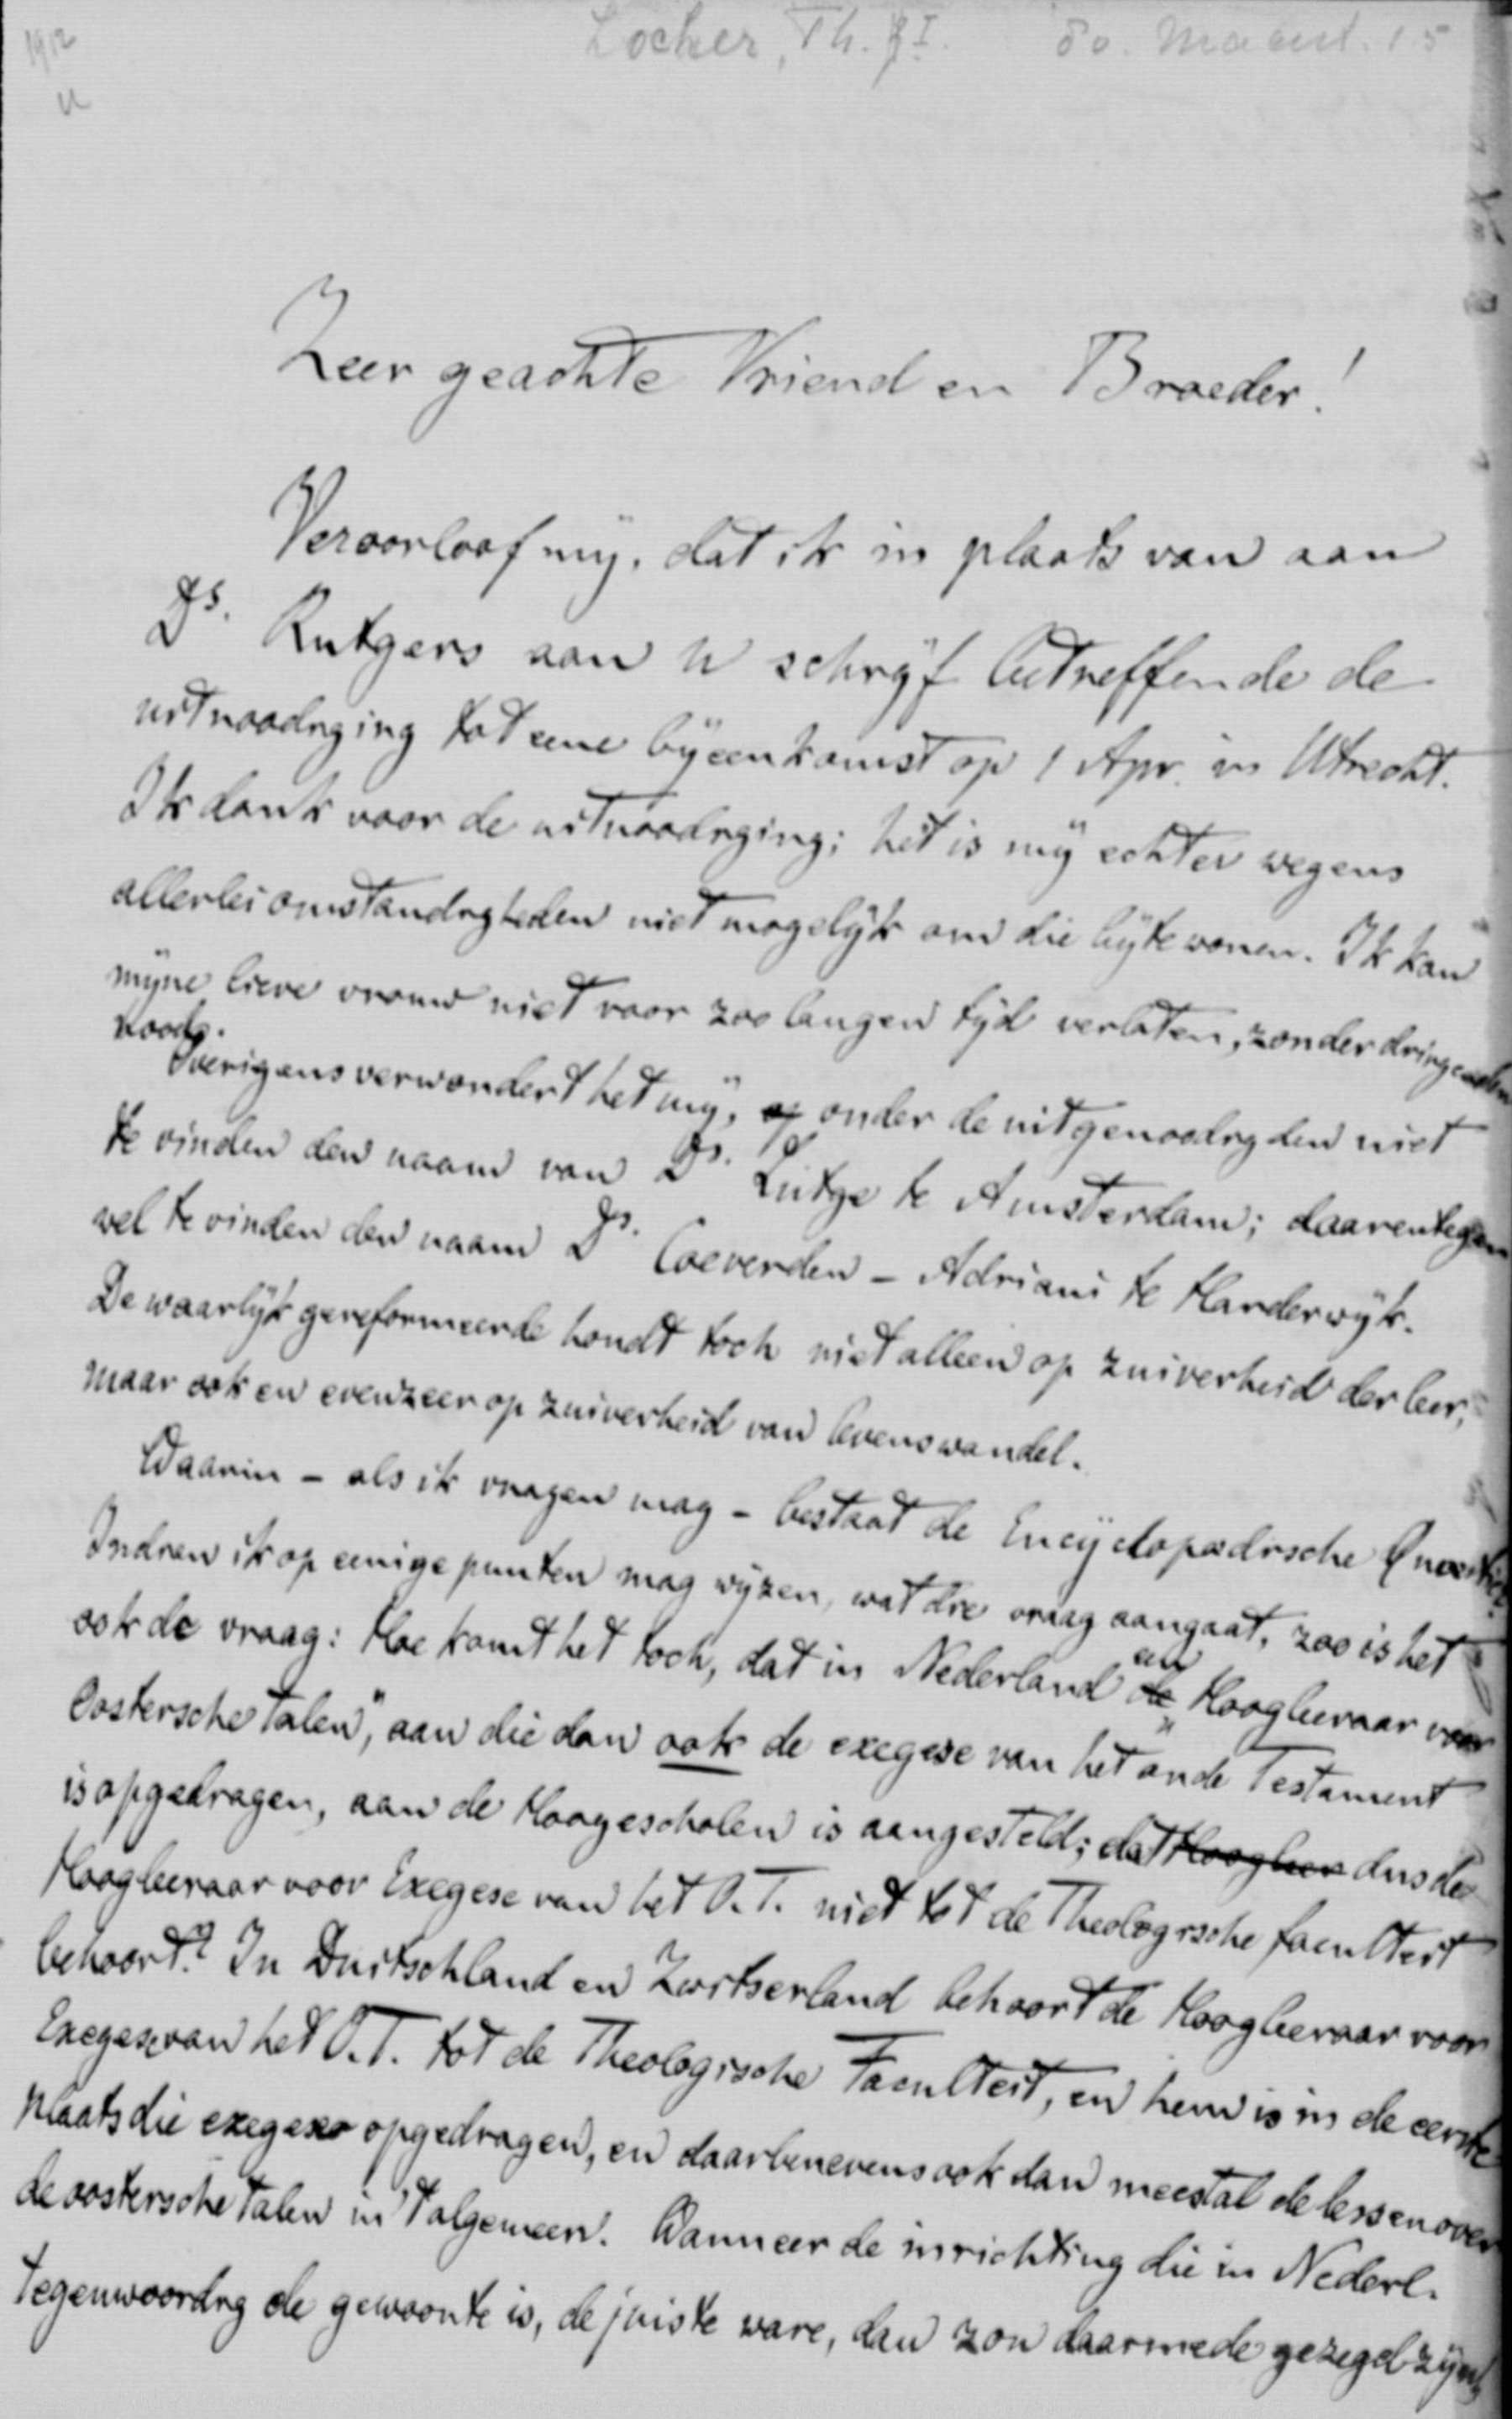 1912
Locher, Th. J I. 80. Maart. 15
u
Zeer geachte Vriend en Broeder!
Veroorloof mij, dat ik in plaats van aan
Ds. Rutgers aan U schrijf betreffende de
uitnoodiging tot eene bijeenkomst op 1 Apr. in Utrecht.
Ik dank voor de uitnoodiging; het is mij echter wegens
allerlei omstandigheden niet mogelijk om die bijtewonen. Ik kan
mijne lieve vrouw niet voor zoo langen tijd verlaten, zonder dringenden
noodz.
Overigens verwondert het mij, op onder de uitgenoodigden niet
te vinden den naam van Ds. Lütge te Amsterdam; daarentegen
wel te vinden den naam Ds. Coeverden - Adriani te Harderwijk.
De waarlijk gereformeerde houdt toch niet alleen op zuiverheid der leer,
maar ook en evenzeer op zuiverheid van levenswandel.
Waarin - als ik vragen mag - bestaat de Encyclopædische Quaestie?
Indien ik op eenige punten mag wijzen, wat die vraag aangaat, zoo is het
ook de vraag: Hoe komt het toch, dat in Nederland de een Hoogleeraar voor
„Oostersche talen", aan die dan ook de exegese van het oude Testament
is opgedragen, aan de Hoogescholen is aangesteld; dat Hoogleer dus de
Hoogleeraar voor Exegese van het O.T. niet tot de Theologische facultert
behoort? In Duitschland en Zwitserland behoort de Hoogleeraar voor
Exegese van het O.T. tot de Theologische Faculteit, en hem is in de eerste
plaats die exegese opgedragen, en daarbenevens ook dan meestal de lessen over
de oostersche talen in 't algemeen. Wanneer de inrichting die in Nederl.
tegenwoordig de gewoonte is, de juiste ware, dan zou daarmede gezegd zijn,